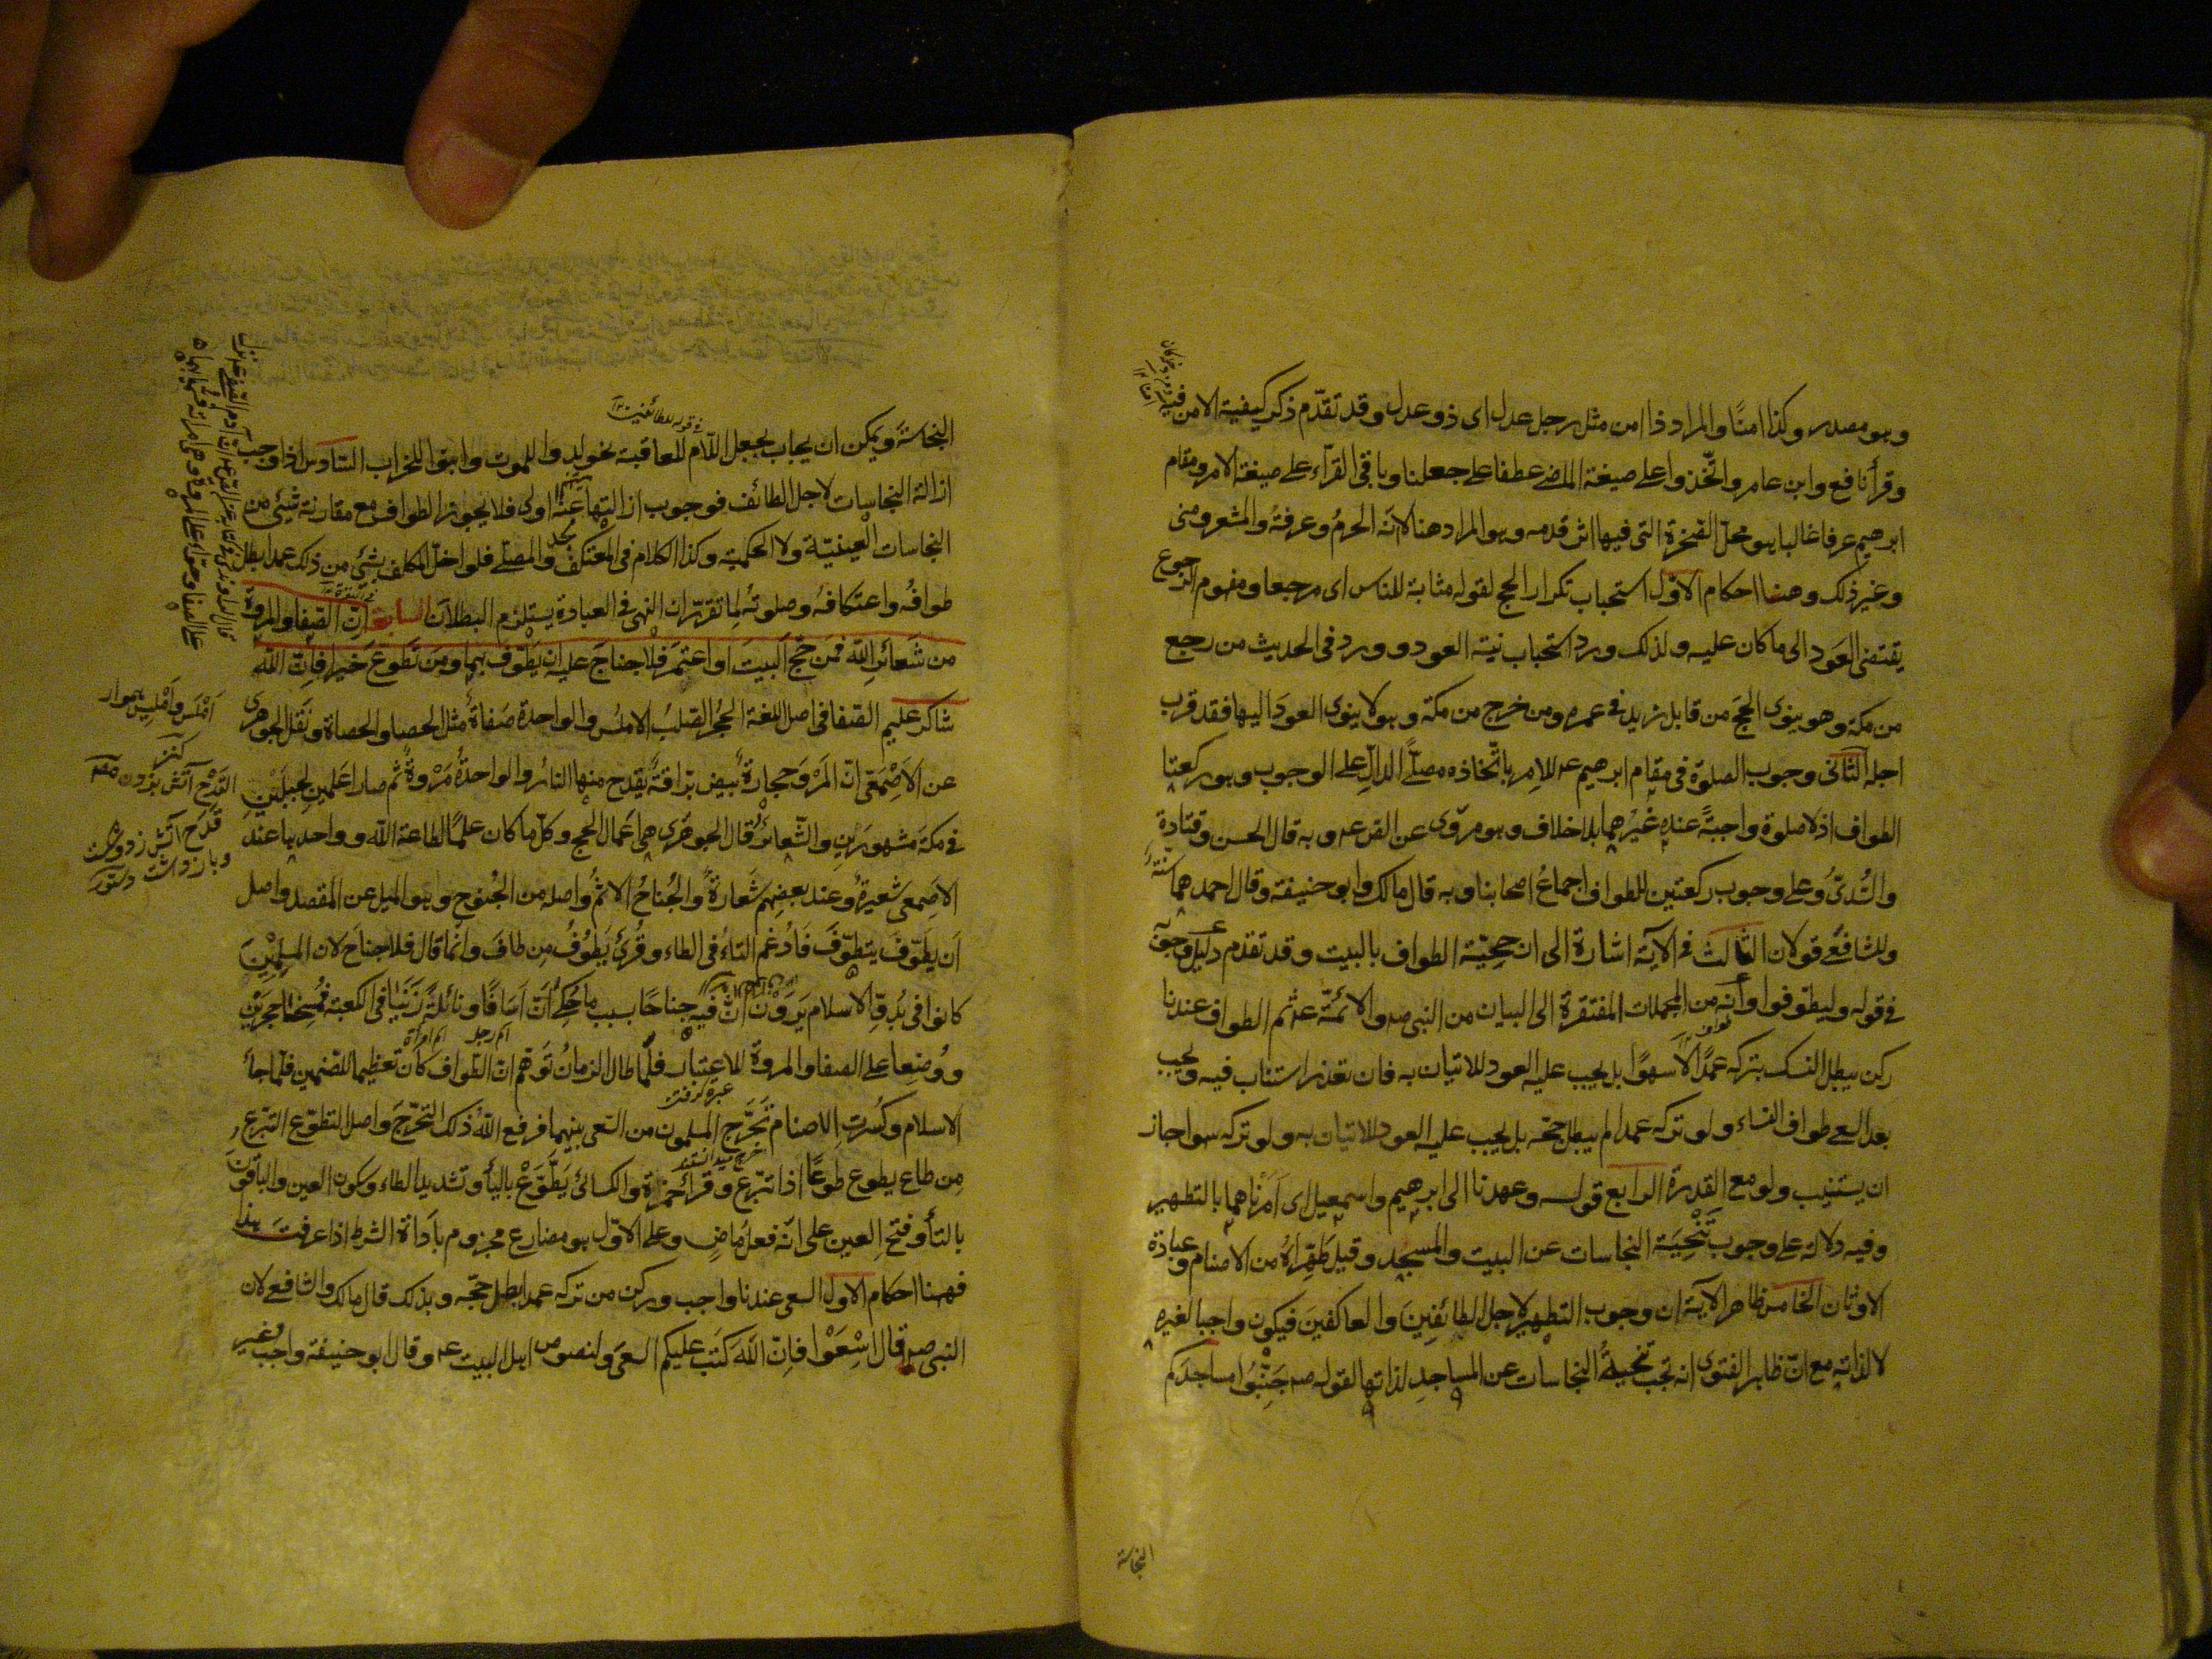 وهو مصدر وكذا امنًا والمراد ذا امن مثل رجل عدل اى ذو عدل وقد تقدّم ذكر كيفية الامن فيه
وقرأ نافع وابن عامر واتّخذوا على صيغة الماضى عطفا على جعلنا وباقى القرّاء على صيغة الامر ومقام
ابرهيم عرفا غالبا هو محلّ الصّخرة التى فيها اثر قدمه وهو المراد هنا لانه الحرمُ وعرفةُ والمشعر ومنى
وغير ذلك وهنا احكام الاوّل استحباب تكرار الحج لقوله مثابة للناس اى مرجعا ومفهوم الرجوع
يقتضى العَود الى ما كان عليه ولذلك ورد استحباب نية العود وورد فى الحديث من رجع
من مكة وهو ينوى الحجّ من قابل زيد فى عمره ومن خرج من مكة وهو لا ينوى العودَ اليها فقد قرب
اجله الثّانى وجوب الصلوة فى مقام ابرهيم عه للامر باتّخاذه مصلّىً الدالّ على الوجوب وهو ركعتا
الطواف اذ لا صلوة واجبةً عنده غيرُهما بلا خلاف وهو مروّى عن الص عه وبه قال الحسن وقتادة
والسُّدىّ وعلى وجوب ركعتين للطواف اجماعُ اصحابنا وبه قال مالك وابو حنيفة وقال احمد هما سنة
وللشافعى قولان الثّالث فى الآية اشارة الى ان تحيّة الطواف بالبيت وقد تقدم دليل وجوبه
فى قوله وليطوفوا وأنه من المجملات المفتقرة الى البيان من النبى صه والائمّة عه ثم الطواف عندنا
ركن يبطل النسك بتركه عمدًا لا سهوًا بل يجب عليه العود للاتيان به فان تعذر استناب فيه ويجب
بعد السعى طواف النساء ولو تركه عمدا لم يبطل حجّه بل يجب عليه العود للاتيان به ولو تركه سهوا جاز
ان يستنيب ولو مع القدرة الرابع قوله وعهدنا الى ابرهيم واسمعيل اى اَمَرْناهما بالتطهير
وفيه دلالة على وجوب تَنْحِيَة النجاسات عن البيت والمسجد وقيل طَهِّراهُ من الاصنام وعبادة
الاوثان الخامس ظاهر الآية ان وجوب التطهير لاجل الطائفينَ والعاكفينَ فيكون واجبا لغيره
لا لذاته مع انّ ظاهر الفتوى انه تجب تنحيةُ النجاسات عن المساجد لذاتها لقوله صه جَنِّبُوا مساجدَكم
النجاسة
فى قوله للطائفين
النجاسةَ ويمكن ان يجاب بجعل اللّام للعاقبة نحو لِدوا للموت وابنوا للخراب السّادس اذا وجب
ازالة النجاسات لاجل الطائف فوجوب ازالتها عنه اولى فلا يجوز الطواف مع مقارنة شيئ من
النجاسات العينيّة ولا الحكمية وكذا الكلام فى المعتكف والمصلّى فلو اخلّ المكلف بشئ من ذلك عمدا بطل
طوافُه واعتكافُه وصلوتُه لِما تقرّر ان النهى فى العبادة يستلزم البطلان السابعة اِنّ الصّفا والمروة
من شَعائرِ الله فمَن حَجَّ البيتَ اواعتمَر فلا جناحَ عليه ان يطّوّف بهما ومن تَطوعَ خيرا فانّ الله
شاكر عليم الصّفا فى اصل اللغة الحجُر الصّلبُ الاملسُ والواحدة صَفاةٌ مثل الحصا والحصاة ونَقَل الجوهرى
عن الاَصمَعى انّ المَرْوَ حجارةٌ بيض برّاقةٌ يقدح منها النارُ والواحدةُ مَرْوةٌ ثم صارا عَلمينِ لجبلَيْنِ
فى مكة مشهورَينِ والشّعائرُ قال الجوهَرى هى اعمال الحج وكلّ ما كان علمًا لطاعة الله وواحدها عند
الاَصمعى شَعيرةٌ وعند بعضِهم شَعارةٌ والجُناحُ الاثمُ واصله من الجُنوح وهو الميل عن المقصد واصل
اَن يطّوّفَ يتطوّفَ فَاُدغم التاءُ فى الطاء وقُرئ يَطُوفُ من طافَ وانّما قال فلا جناحَ لان المسلمينَ
كانوا فى بُدوّ الاسلام يَرَوْن انّ فيه جناحًا بسبب ما حُكِىَ انّ اَسَافًا ونائلةَ زَنَيَا فى الكعبة فمُسِخا حجرَيْن
ووُضِعا على الصفا والمروة للاعتبار فلمّا طال الزمانُ تَوهّم انّ الطّواف كان تعظيما للصّنمين فلمّا جاءَ
الاسلام وكُسِرت الاصنام تَحَرَّج المسلمون من السّعى بينهما فرفع اللهُ ذلك التحرّجَ واصل التطوّع التبرّع
مِن طاعَ يطوع طوعًا اذا تبرّع وقرأ حمزة والكسائى يَطَّوَّعْ بالياءِ وتشديد الطاء وسكون العين والباقون
بالتاءِ وفتحِ العين على انّه فعل مَاضٍ وعلى الاوّل هو مضارع مجزوم باَداة الشرط اذا عرفتَ هذا
فهنا احكام الاول السعى عندنا واجب وركن من تركه عمدا بطل حجّه وبذلك قال مالك والشافعى لان
النبى صه قال اسْعَوْا فاِنّ الله كَتبَ عليكم السّعىَ ولنصوص اهل البيت عه وقال ابو حنيفة واجب وغير
اسم رجل
اسم امرأة
عبرة گرفتن
اَمْلَس واَمْلِيس هموار
كنز
القدح آتش بزدن
قدح آتش زدن
دستور